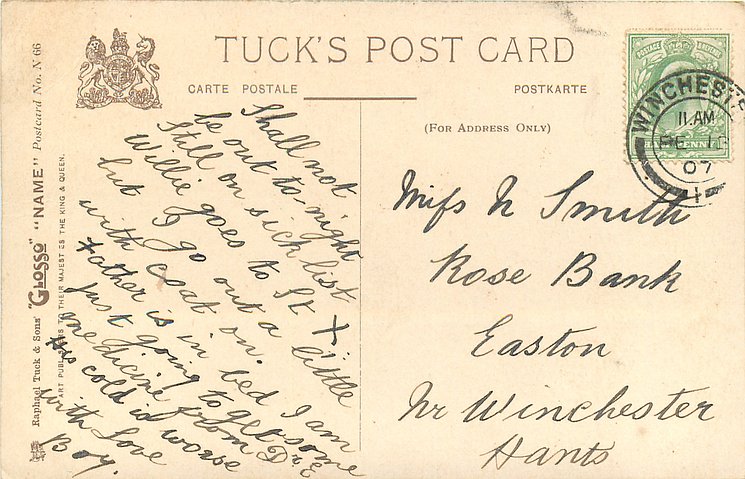 TUCK'S POST CARD
CARTE POSTALE
POSTKARTE
(FOR ADDRESS ONLY)
Raphael Tuck & Sons' "GLOSSO" "NAME" Postcard No. N 66
ART PUBLISHERS TO THEIR MAJESTIES THE KING & QUEEN.
POSTAGE
HALFPENNY
WINCHESTE
11.AM
FE
07
1
Shall not
be out to night
Still on sick list
Willie goes to St X
but I go out a little
with coat on.
Father is in bed I am
just going to get some
medicine from Dr E
His cold is worse
with Love
Boy.
Miss N Smith
Rose Bank
Easton
Nr Winchester
Hants